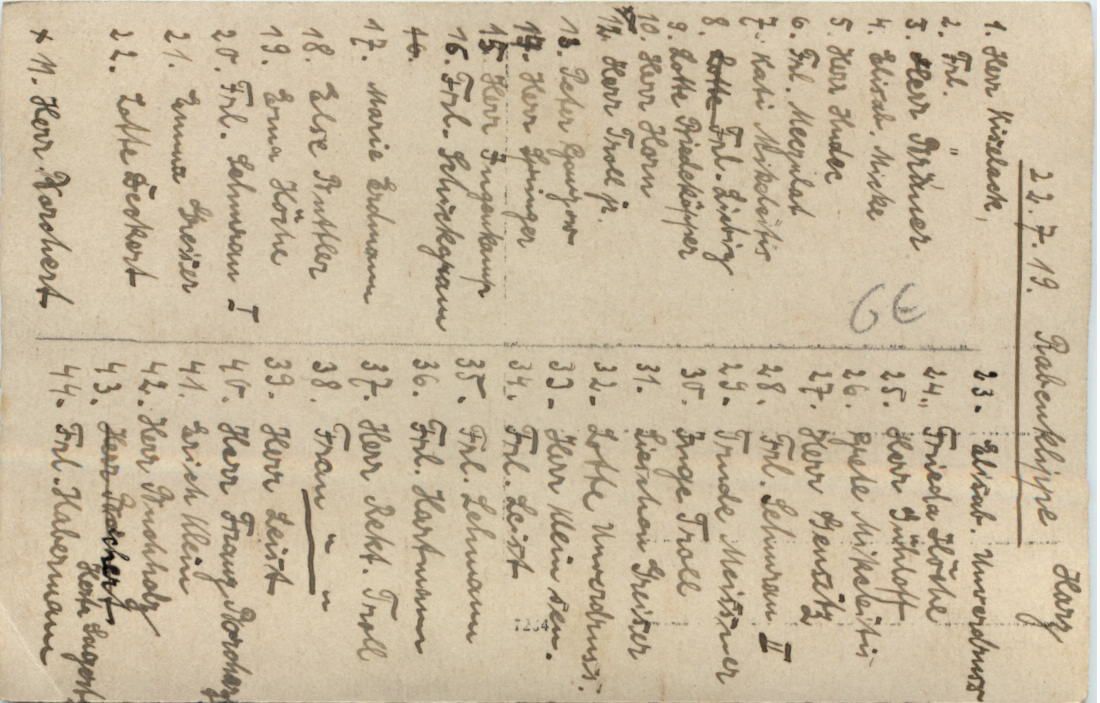 22.7.19. Rabenklippe Harz
1. Herr Kieselack,
2. Frl. "
3. Herr Bräuer
4. Elisab. Miske
5. Herr Huder
6. Frl. Meyulat
7. Kati Mikeleitis
8. Lotte Frl. Liebig
9. Lotte Briedeköpper
10. Herr Horn
12. Herr Troll jr.
13. Peter Gurzow
14. Herr Springer
15. Herr Jungenkamp
16. Frl. Schickgram
16.
17. Marie Erdmann
18. Else Buttler
19. Erna Höhe
20. Frl. Lehmann I
21. Emma Greiser
22. Lotte Deckert
x 11. Herr Borchert
GE
23. Elisab. Unverdruss
24. Frieda Höhe
25. Herr Gühloff
26. Grete Mikeleitis
27. Herr Gensitz
28. Frl. Lehmann II
29. Trude Meissner
30. Inge Troll
31. Lieschen Greiser
32. Lotte Unverdruss.
33. Herr Klein sen.
34. Frl. Leist
35. Frl. Lehmann
36. Frl. Hartmann
37. Herr Rekt. Troll
38. Frau " "
39. Herr Leist
40. Herr Franz Borchert
41. Erich Klein
42. Herr Buchholz
43. Herr
44. Frl. Habermann
7264